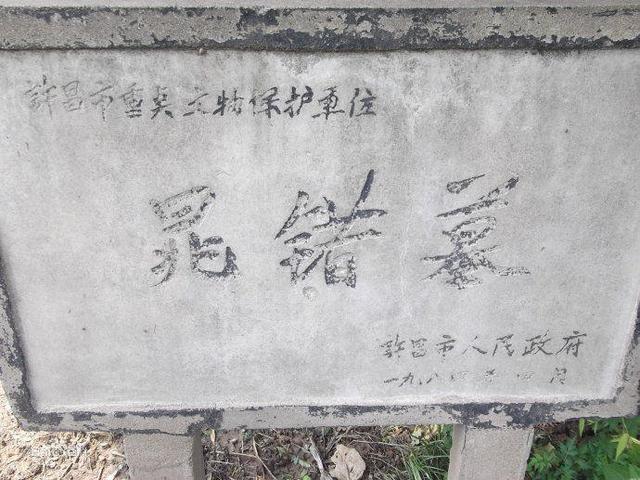 許昌市重点文物保护单位
晁错墓
許昌市人民政府
一九八四年四月